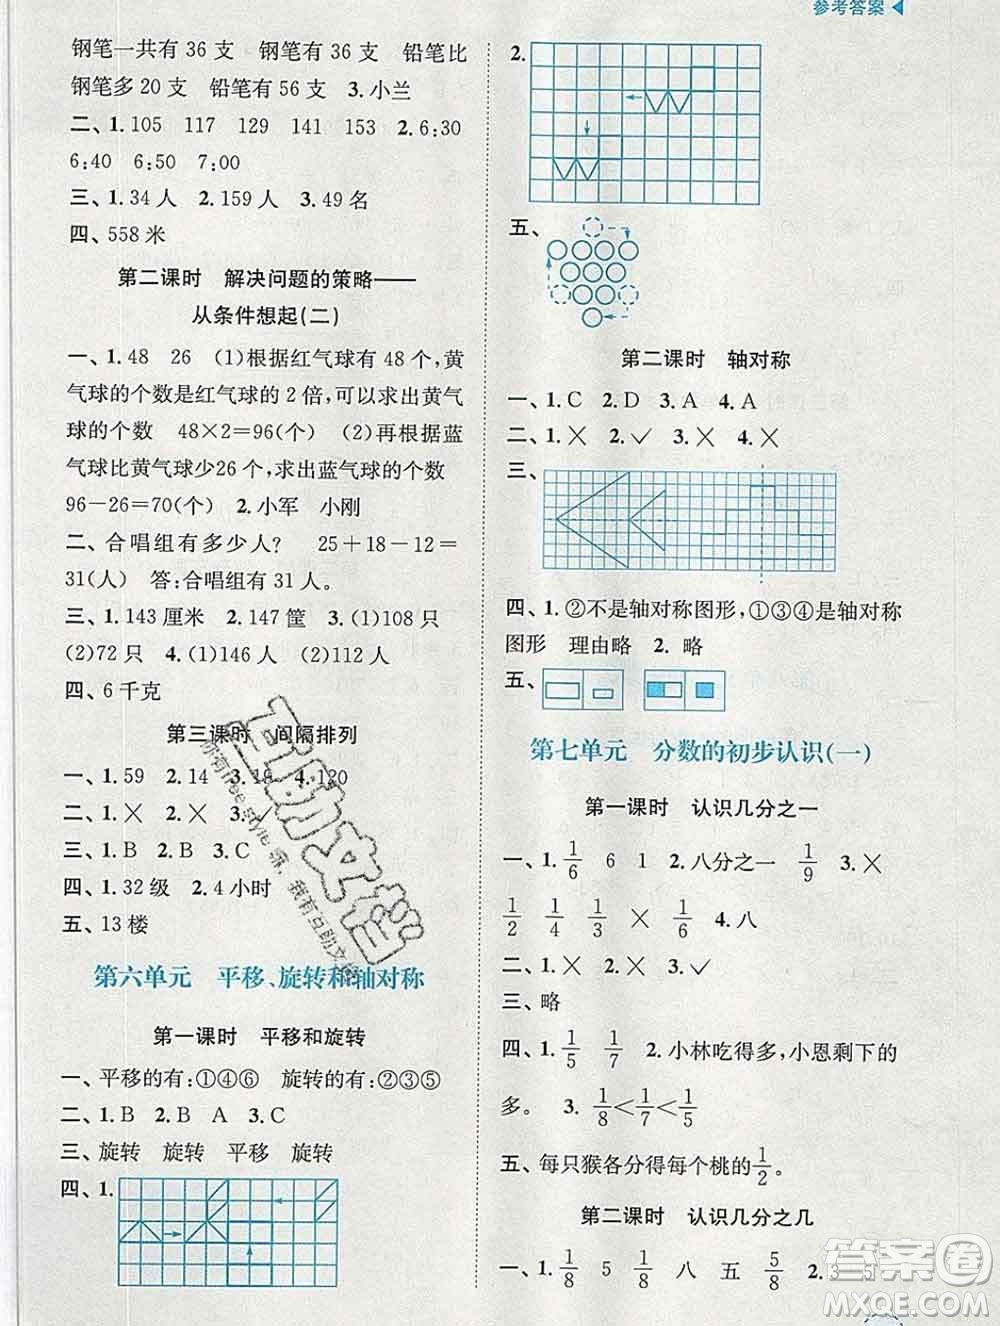 参考答案
钢笔一共有 36 支　钢笔有 36 支　铅笔比
钢笔多 20 支　铅笔有 56 支　3.小兰
二、1.105　117　129　141　153　2.6:30
6:40　6:50　7:00
三、1.34 人　2.159 人　3.49 名
四、558 米
第二课时　解决问题的策略——
从条件想起(二)
一、1.48　26　(1)根据红气球有 48 个,黄
气球的个数是红气球的 2 倍,可以求出黄气
球的个数　48×2=96(个)　(2)再根据蓝
气球比黄气球少26 个,求出蓝气球的个数
96-26=70(个)　2.小军　小刚
二、合唱组有多少人?　25+18-12=
31(人)　答:合唱组有 31 人。
三、1.143 厘米　2.147 筐　3.(1)108 只
(2)72 只　4.(1)146 人　(2)112 人
四、6 千克
第三课时　间隔排列
一、1.59　2.14　3.18　4.120
二、1.×　2.×　3.✓
三、1.B　2.B　3.C
四、1.32 级　2.4 小时
五、13 楼
第六单元　平移、旋转和轴对称
第一课时　平移和旋转
一、平移的有:①④⑥　旋转的有:②③⑤
二、1.B　2.B　A　3.C
三、旋转　旋转　平移　旋转
四、1.
2.
五、
第二课时　轴对称
一、1.C　2.D　3.A　4.A
二、1.×　2.✓　3.×　4.×
三、
四、1.②不是轴对称图形,①③④是轴对称
图形　理由略　2.略
五、
第七单元　分数的初步认识(一)
第一课时　认识几分之一
一、1.1/6　6　1　2.八分之一　1/9　3.×
1/2　1/4　1/3　×　1/4　4.八
二、1.×　2.×　3.✓
三、略
四、1.1/5　1/7　2.小林吃得多,小恩剩下的
多。　3.1/8<1/7<1/5
五、每只猴各分得每个桃的1/2。
第二课时　认识几分之几
一、1.1/8　5　1/8　八　五　5/8　2.3　5
互助文档
你有free style嘛，我有互助文档
答案圈
MXQE.COM